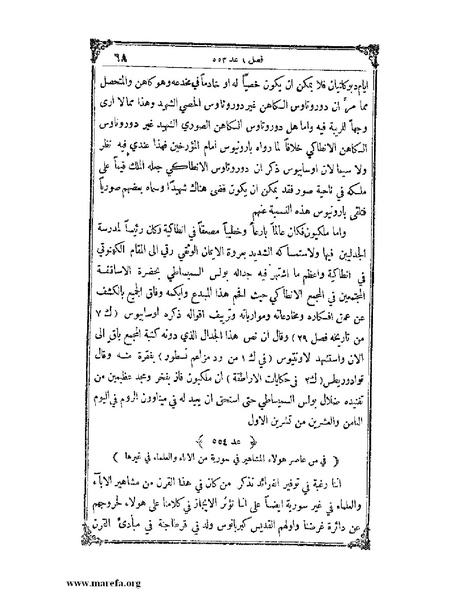 ٦٨
فصل ١ عد ٥٥٣
ايام ديوكلتيان فلا يمكن ان يكون خصيًا له او خادمًا في مخدعه وهو كاهن والمتحصل
مما مر ان دوروتاوس الكاهن غير دوروتاوس الخصي الشهيد وهذا مما لا ارى
وجهًا للريبة فيه واما هل دوروتاوس الكاهن الصوري الشهيد غير دوروتاوس
الكاهن الانطاكي خلافًا لما رواه بارونيوس امام المؤرخين فهذا عندي فيه نظر
ولا سيما لان اوسابيوس ذكر ان دوروتاوس الانطاكي جعله الملك قيمًا على
ملكه في ناحية صور فقد يمكن ان يكون قضى هناك شهيدًا وسماه بعضهم صوريًا
فتلقى بارونيوس هذه التسمية عنهم
واما ملكيون فكان عالمًا بارعًا وخطيبًا مصقعًا في انطاكية وكان رئيسًا لمدرسة
الجدليين فيها ولاستمساكه الشديد بعروة الايمان الوثقى رقي الى المقام الكهنوتي
في انطاكية واعظم ما اشتهر فيه جداله بولس السميساطي بحضرة الاساقفة
المجتمعين في المجمع الانطاكي حيث افحم هذا المبتدع وابكمه وفاق الجميع بالكشف
عن عمق افكاره ومخادعاته ومواربته وتزييف اقواله ذكره اوسابيوس ( ك ٧
من تاريخه فصل ٢٩) وقال ان نص هذا الجدال الذي دونه كتبة المجمع باق الى
الان واستشهد لاونتيوس ( في ك ١ من رد مزاعم نسطور ) بفقرة منه وقال
توادوريطس ( ك٢ في حكايات الاراطقة ) ان ملكيون فاز بفخر ومجد عظيمين من
تفنيده ضلال بولس السميساطي حتى استحق ان يعيد له في ميناون الروم في اليوم
الثامن والعشرين من تشرين الاول
عد ٥٥٤
( في من عاصر هولاء المشاهير في سورية من الاباء والعلماء في غيرها )
اننا رغبة في توفير الفوائد نذكر من كان في هذا القرن من مشاهير الاباء
والعلماء في غير سورية ايضًا على اننا نؤثر الايجاز في كلامنا على هولاء لخروجهم
عن دائرة غرضنا واولهم القديس كبريانوس ولد في قرطاجنة في مبادئ القرن
www.marefa.org